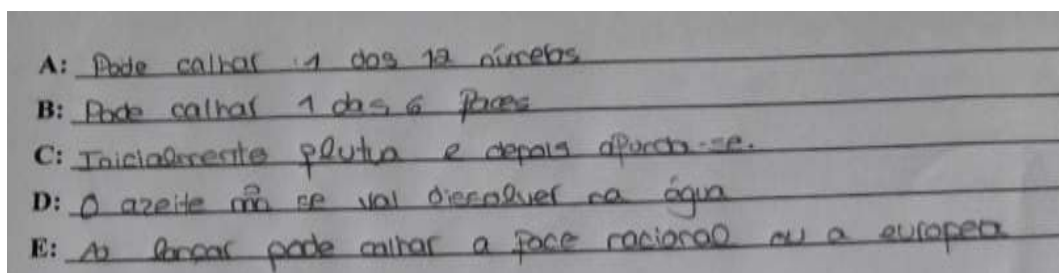 A: Pode calhar 1 dos 12 números
B: Pode calhar 1 das 6 faces
C: Inicialmente flutua e depois afunda-se.
D: O azeite ñ se vai dissolver na água
E: Ao lançar pode calhar a face nacional ou a europeia